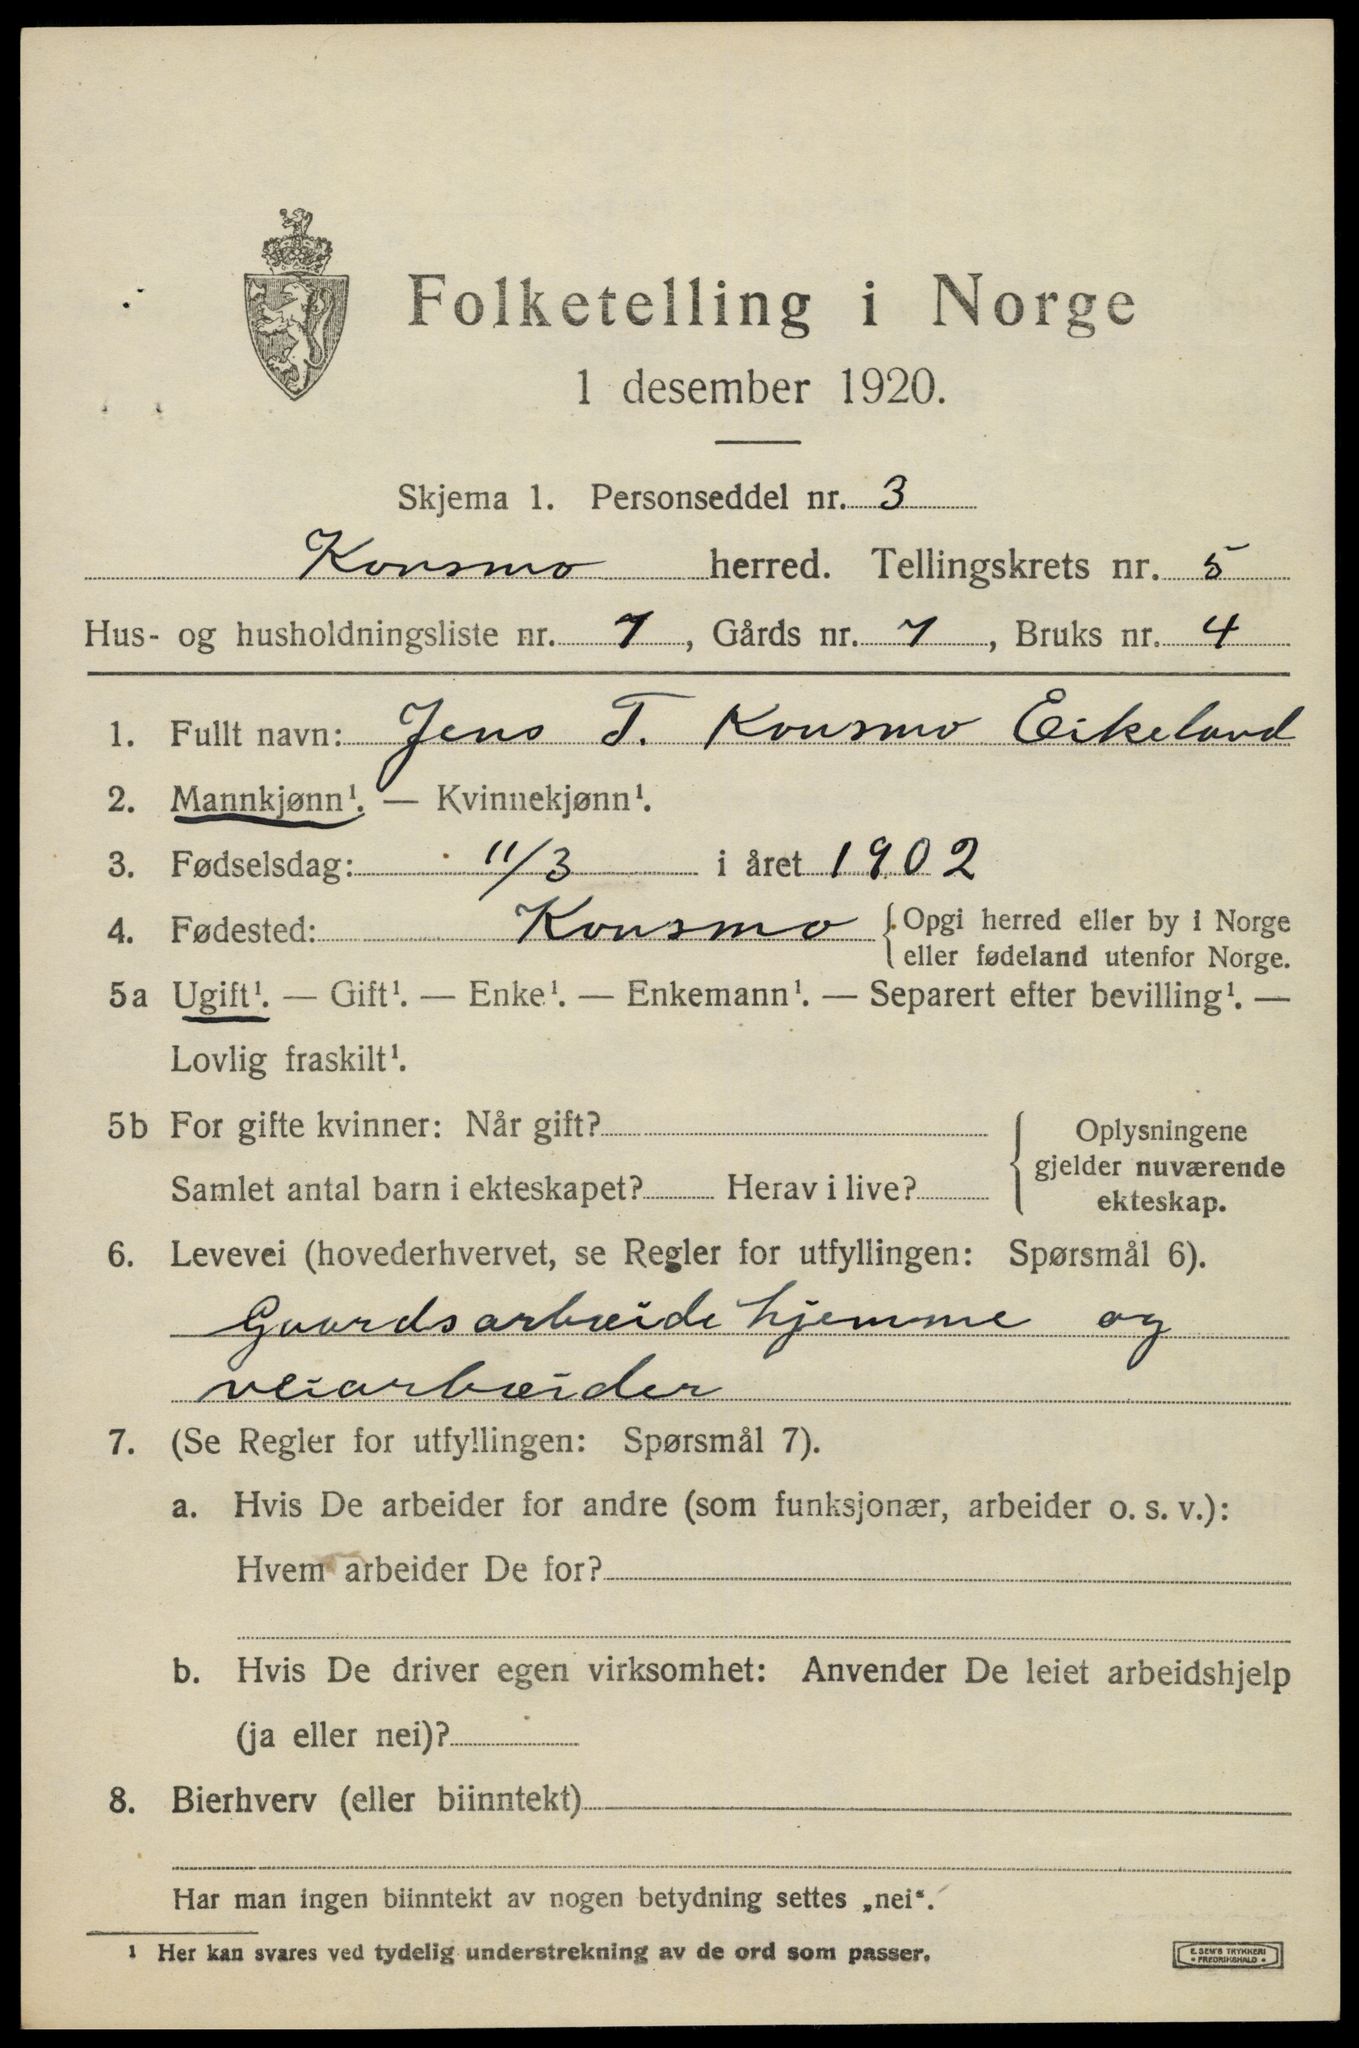 Folketelling i Norge
1 desember 1920.
Skjema 1. Personseddel nr. 3
Konsmo herred. Tellingskrets nr. 5
Hus- og husholdningsliste nr. 7, Gårds nr. 7, Bruks nr. 4
1. Fullt navn: Jens T. Konsmo Eikeland
2. Mannkjønn¹. — Kvinnekjønn¹.
3. Fødselsdag: 11/3 i året 1902
4. Fødested: Konsmo { Opgi herred eller by i Norge
eller fødeland utenfor Norge.
5a Ugift¹. — Gift¹. — Enke¹. — Enkemann¹. — Separert efter bevilling¹. —
Lovlig fraskilt¹.
5b For gifte kvinner: Når gift?
Samlet antal barn i ekteskapet? Herav i live?
Oplysningene
gjelder nuværende
ekteskap.
6. Levevei (hovederhvervet, se Regler for utfyllingen: Spørsmål 6).
Gaardsarbeide hjemme og
veiarbeider
7. (Se Regler for utfyllingen: Spørsmål 7).
a. Hvis De arbeider for andre (som funksjonær, arbeider o. s. v.):
Hvem arbeider De for?
b. Hvis De driver egen virksomhet: Anvender De leiet arbeidshjelp
(ja eller nei)?
8. Bierhverv (eller biinntekt)
Har man ingen biinntekt av nogen betydning settes „nei“.
¹ Her kan svares ved tydelig understrekning av de ord som passer.
E. SEM'S TRYKKERI
• FREDRIKSHALD •